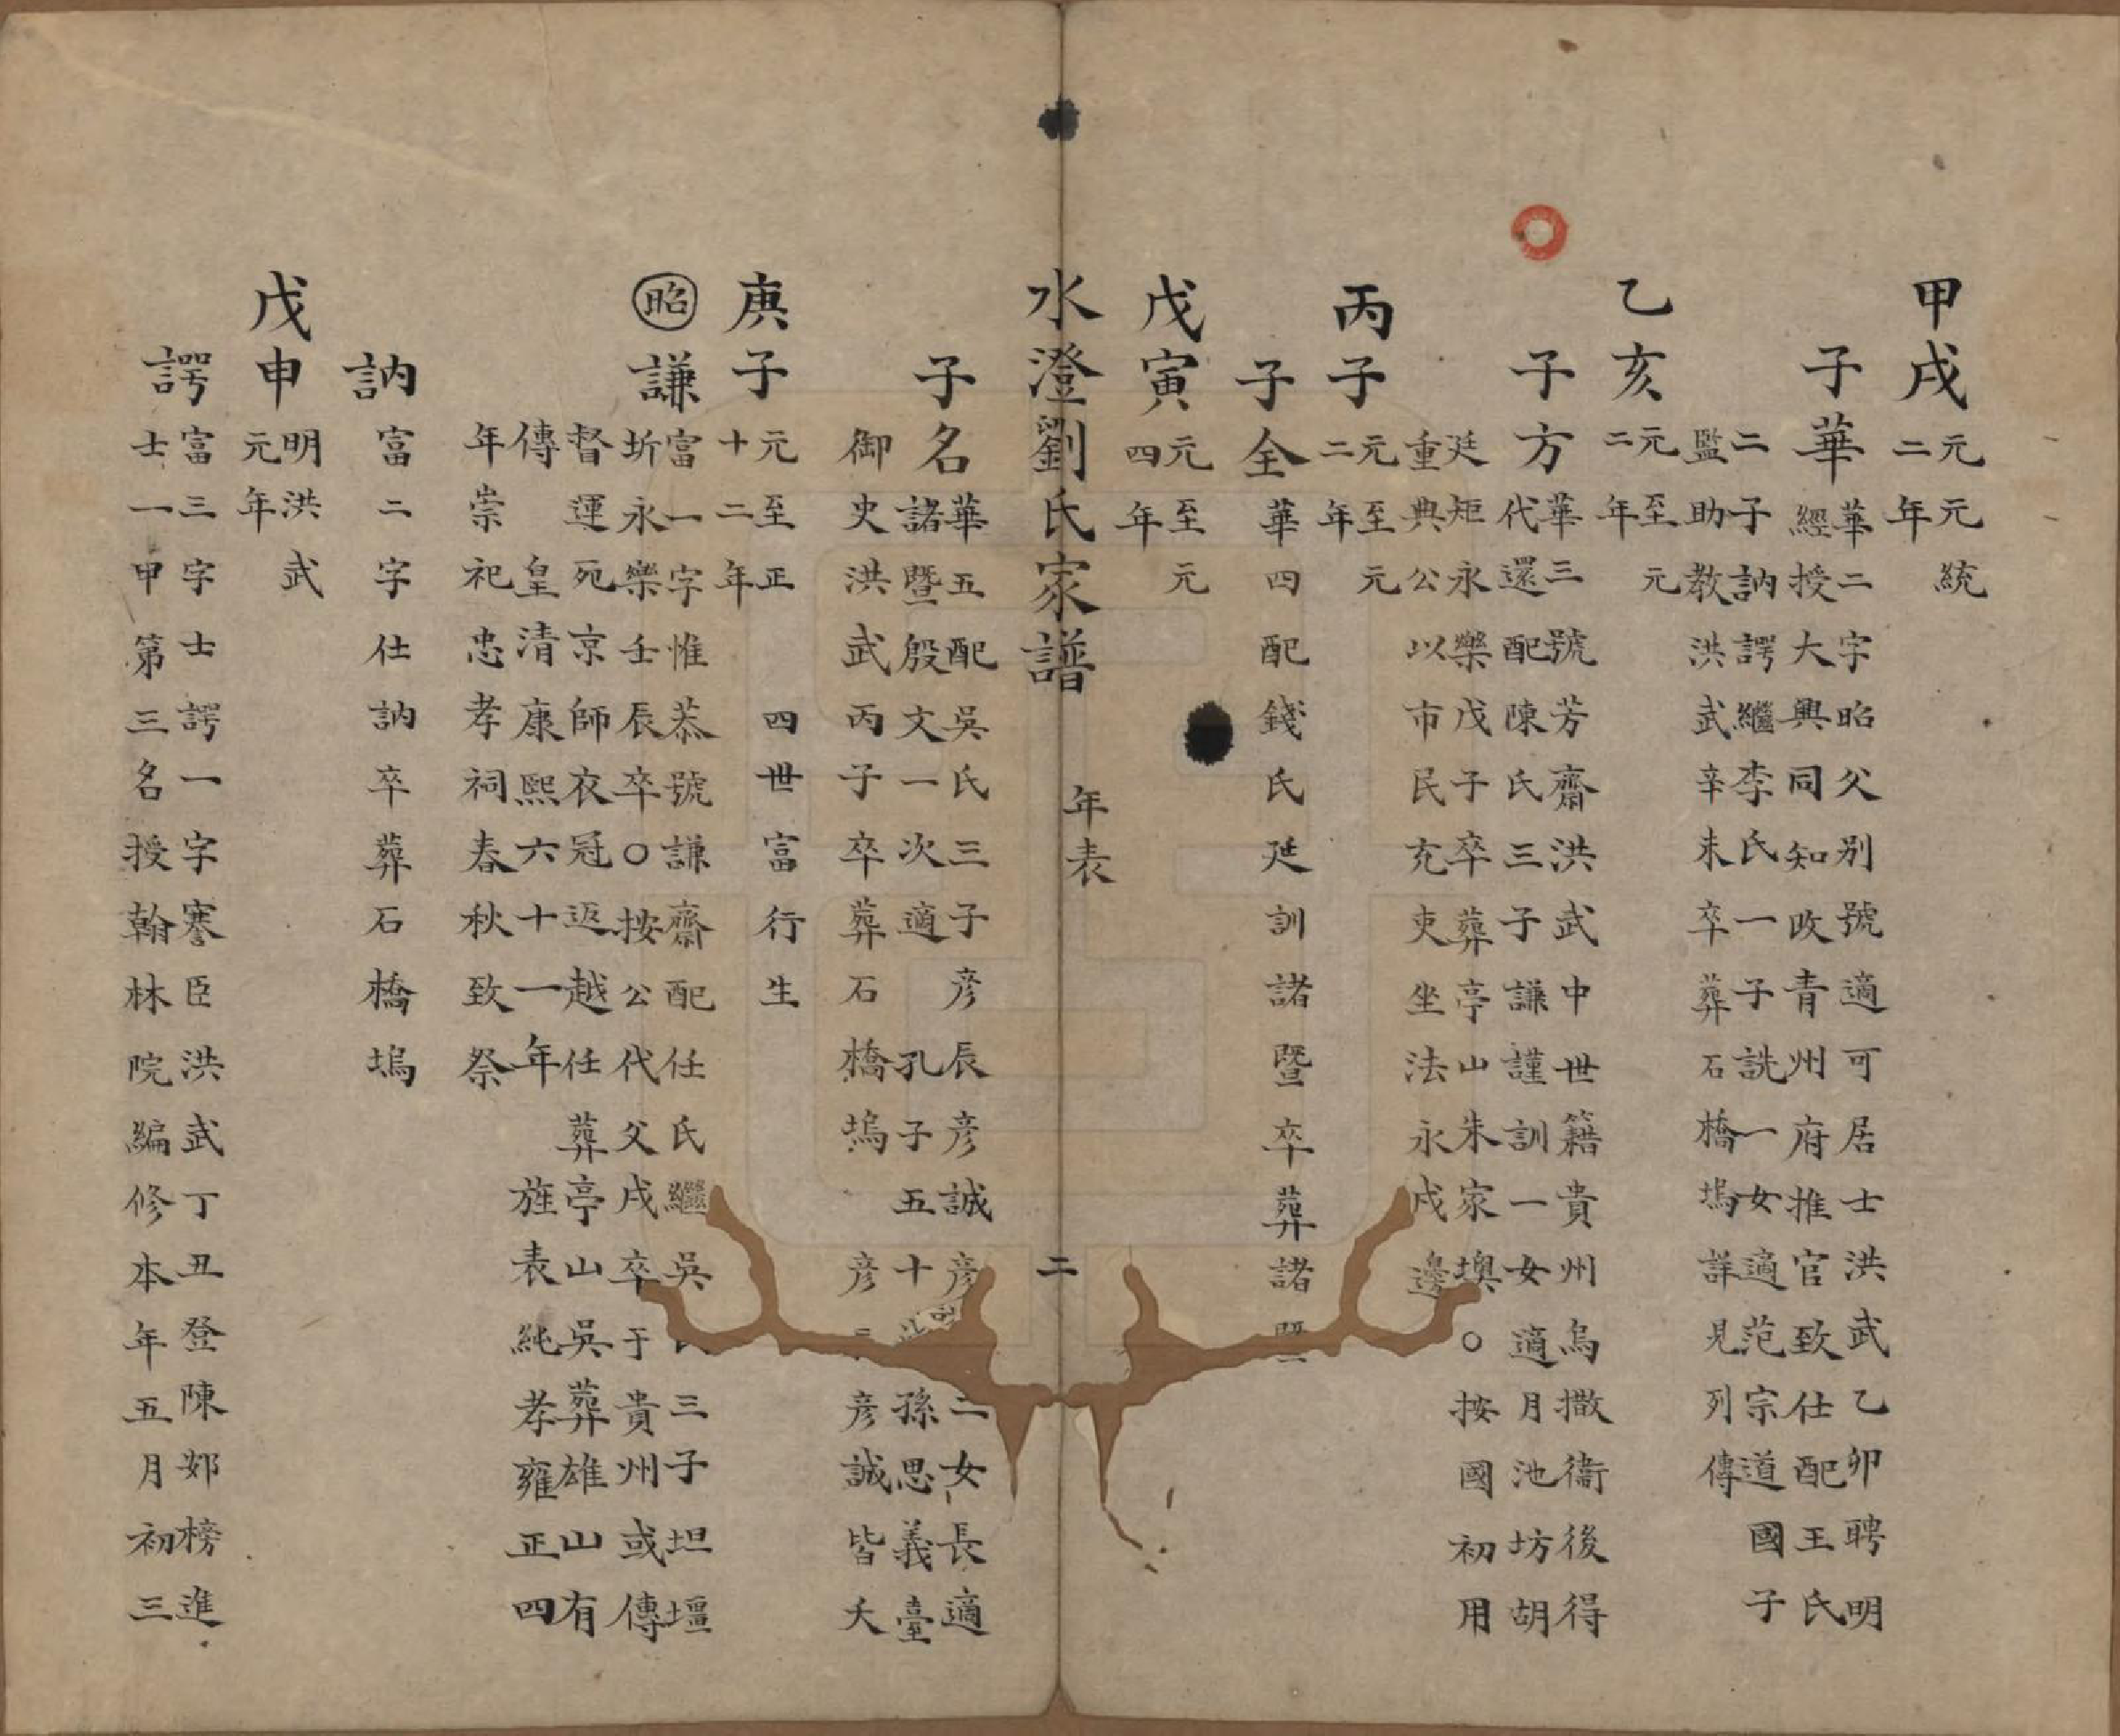 甲戌元統
元二年
子華華二字昭父别號適可居士洪武乙卯聘明
經授大興同知改青州府推官致仕配王氏
二子訥諤繼李氏一子詵一女適范宗道國子
監助教洪武辛未卒葬石橋塢詳見列傳
乙亥元至元
二年
子方華三號芳齋洪武中世籍貴州烏撒衞後得
代還配陳氏三子謙謹訓一女適月池坊胡
廷矩永樂戊子卒葬亭山朱家墺○按國初用
重典公以市民充吏坐法永戍邊
丙子元至元
二年
子全華四配錢氏廷訓諸暨卒葬諸暨
戊寅元至元
四年
水澄劉氏家譜 年表 二
子名華五配吳氏三子彦辰彦誠彦 二女長適
諸暨殷文一次適孔子五十 孫思義臺
御史洪武丙子卒葬石橋塢 彦 彦誠皆夭
庚子元至正 四世富行生
十二年
昭
謙富一字惟恭號謙齋配任氏繼吳 三子坦壇
圻永樂壬辰卒○按公代父戍卒于貴州或傳
督運死京師衣冠返越任葬亭山吳葬雄山有
傳 皇清康熙六十一年 旌表純孝雍正四
年崇祀忠孝祠春秋致祭
訥富二字仕訥卒葬石橋塢
戊申明洪武
元年
諤富三字士諤一字謇臣洪武丁丑登陳䢿榜進
士一甲第三名授翰林院編修本年五月初三